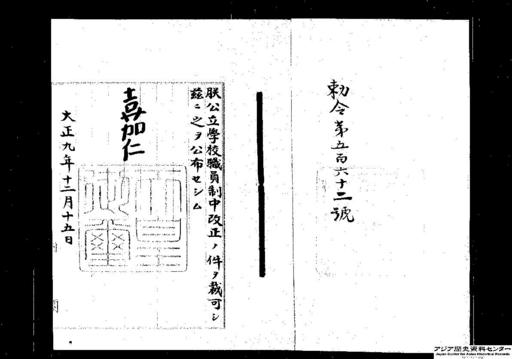 勅令第五百六十二號
朕公立學校職員制中改正ノ件ヲ裁可シ
茲ニ之ヲ公布セシム
嘉仁
天皇御璽
大正九年十二月十五日
アジア歴史資料センター
Japan Center for Asian Historical Records